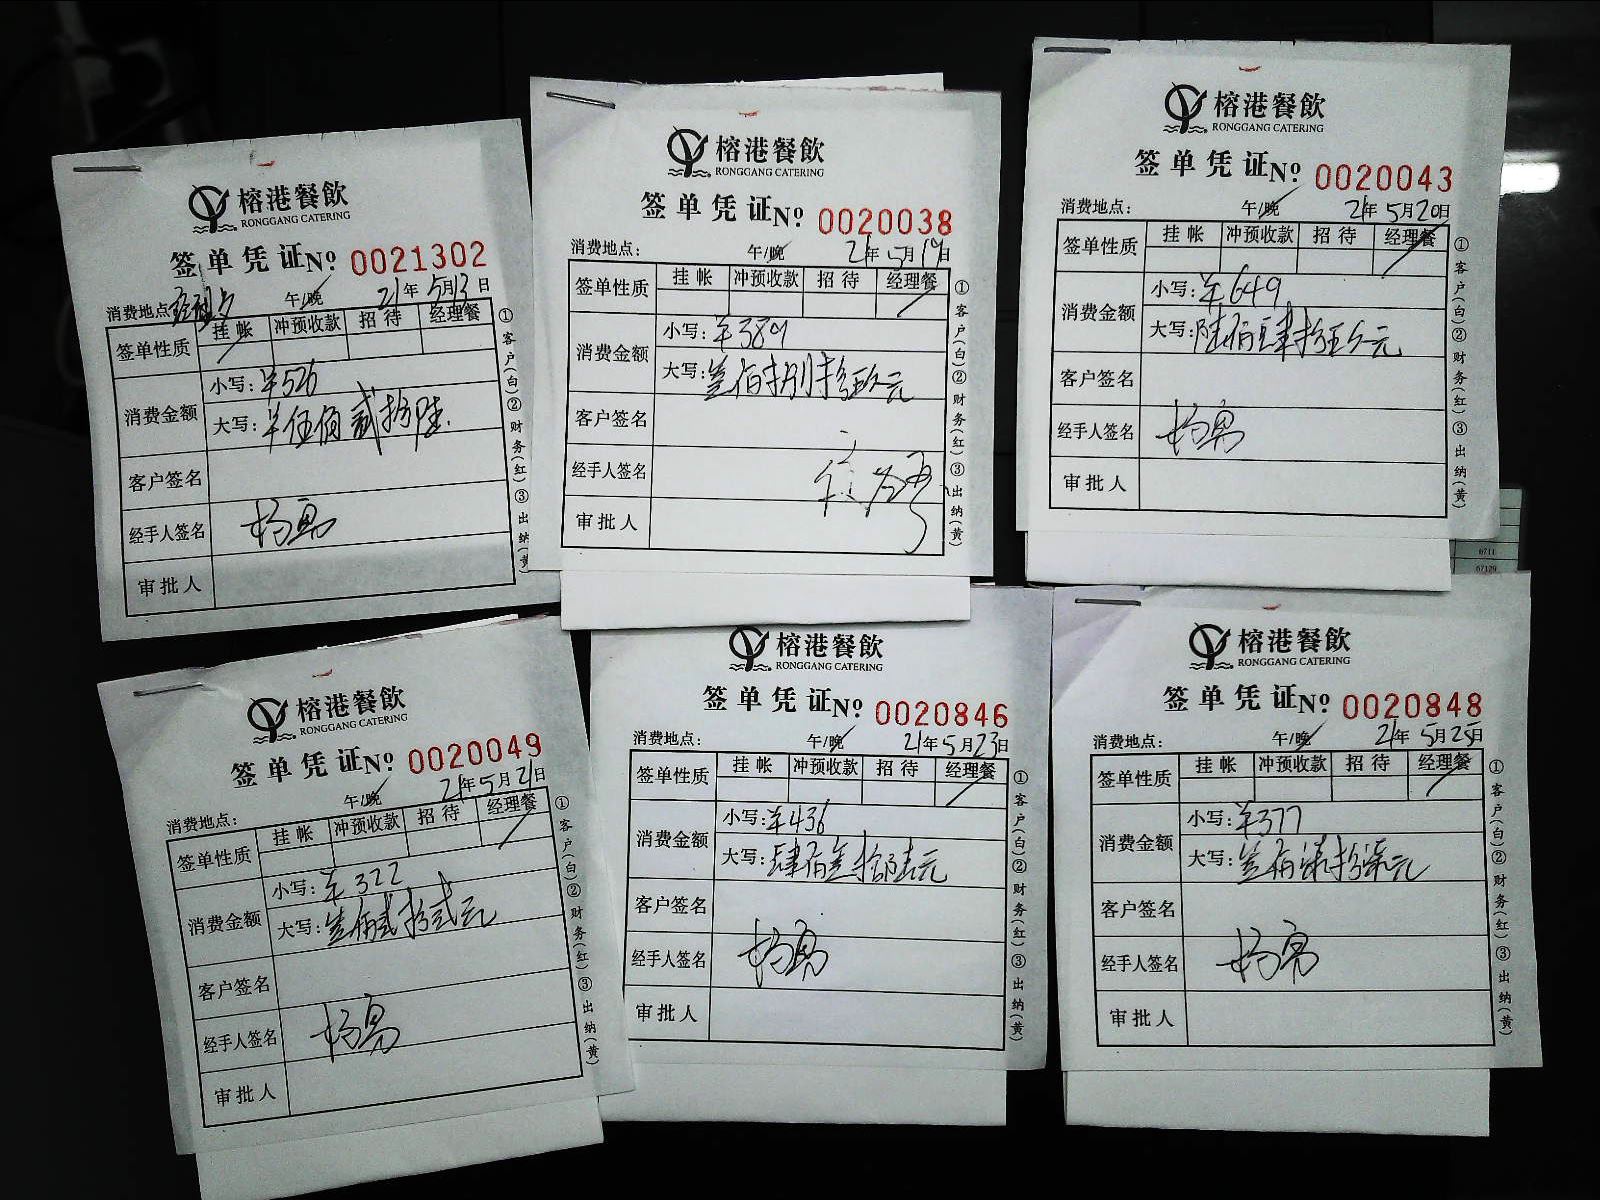 榕港餐飲
RONGGANG CATERING
签单凭证No 0021302
消费地点 午/晚 21年5月13日
签单性质 挂帐 冲预收款 招待 经理餐
消费金额 小写:¥526
大写:¥伍佰贰拾陆
客户签名
经手人签名 杨勇
审批人
①客户(白)②财务(红)③出纳(黄)
榕港餐飲
RONGGANG CATERING
签单凭证No 0020038
消费地点: 午/晚 21年5月19日
签单性质 挂帐 冲预收款 招待 经理餐
消费金额 小写:¥389
大写:叁佰捌拾玖元
客户签名
经手人签名
审批人
①客户(白)②财务(红)③出纳(黄)
榕港餐飲
RONGGANG CATERING
签单凭证No 0020043
消费地点: 午/晚 21年5月20日
签单性质 挂帐 冲预收款 招待 经理餐
消费金额 小写:¥649
大写:陆佰肆拾玖元
客户签名
经手人签名 杨勇
审批人
①客户(白)②财务(红)③出纳(黄)
6711
67120
榕港餐飲
RONGGANG CATERING
签单凭证No 0020049
消费地点: 午/晚 21年5月21日
签单性质 挂帐 冲预收款 招待 经理餐
消费金额 小写:¥322
大写:叁佰贰拾贰元
客户签名
经手人签名 杨勇
审批人
①客户(白)②财务(红)③出纳(黄)
榕港餐飲
RONGGANG CATERING
签单凭证No 0020846
消费地点: 午/晚 21年5月23日
签单性质 挂帐 冲预收款 招待 经理餐
消费金额 小写:¥436
大写:肆佰叁拾陆元
客户签名
经手人签名 杨勇
审批人
①客户(白)②财务(红)③出纳(黄)
榕港餐飲
RONGGANG CATERING
签单凭证No 0020848
消费地点: 午/晚 21年5月25日
签单性质 挂帐 冲预收款 招待 经理餐
消费金额 小写:¥377
大写:叁佰柒拾柒元
客户签名
经手人签名 杨勇
审批人
①客户(白)②财务(红)③出纳(黄)